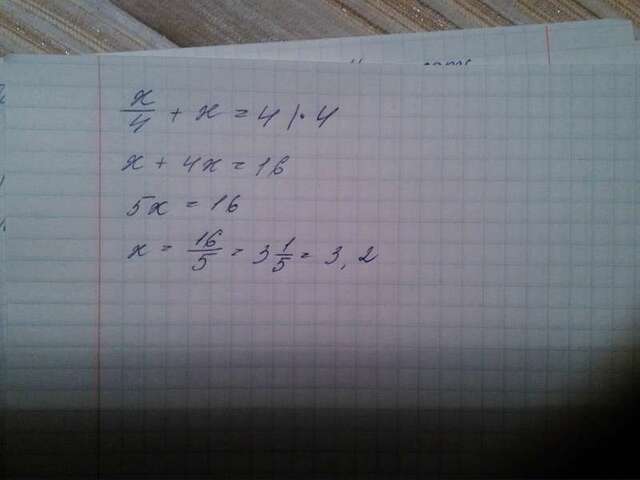 x/4 + x = 4 |·4
x + 4x = 16
5x = 16
x = 16/5 = 3 1/5 = 3,2